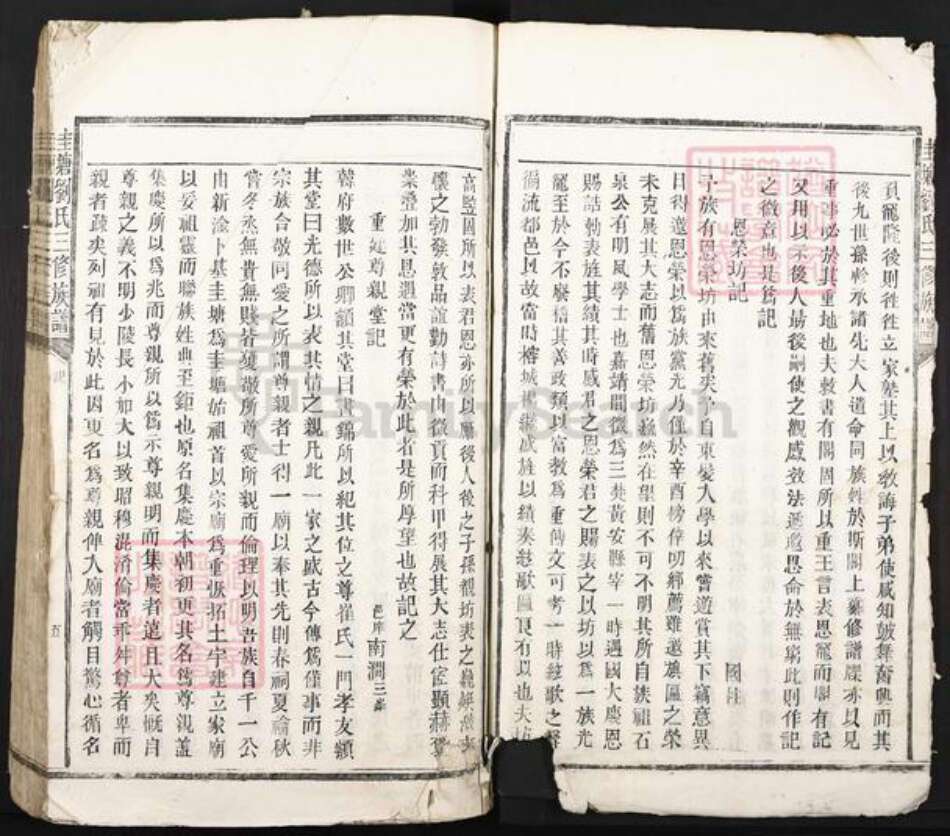 貢寵隆後則徃徃立家塾其上以敎誨子弟使咸知鼓舞奮興而其
後九世孫幹承諸先大人遺命同族姓於斯閣上纂修譜牒亦以見
重事必於其重地也夫敕書有閣固所以重王言表恩寵而閣有記
又用以示後人俾後嗣使之觀感效法遞邀恩命於無窮此則作記
之微意也是爲記
恩榮坊記
國陞
予族有恩榮坊由來舊矣予自束髮入學以來嘗遊賞其下竊意異
日得邀恩榮以爲族黨光乃僅於辛酉榜倖叨鄉薦雖邀旗匾之榮
未克展其大志而舊恩榮坊巍然在望則不可不明其所自族祖石
泉公有明風學士也嘉靖間徵爲三楚黃安縣宰一時遇國大慶恩
賜誥勅表旌其績其時感君之恩榮君之賜表之以坊以爲一族光
寵至於今不廢稽其善政類以富敎爲重傳文可考一時絃歌之聲
徧流都邑以故當時
高豎固所以表君恩亦所以勵後人後之子孫觀坊表之巍
懷之勃發敦品誼勤詩書由徵貢而科甲得展其大志仕宦顯赫
業澄加其恩遇當更有榮於此者是所厚望也故記之
重建尊親堂記
邑庠 南澗三
韓府數世公卿額其堂曰晝錦所以紀其位之尊崔氏一門孝友顏
其堂曰光德所以表其情之親凡此一家之盛古今傳爲僅事而非
宗族合敬同愛之所謂尊親者士得一廟以奉其先則春祠夏禴秋
嘗冬烝無貴無賤皆獲敬所尊愛所親而倫理以明吾族自千一公
由新淦卜基圭塘爲圭塘始祖首以宗廟爲重恢拓土宇建立家廟
以妥祖靈而聯族姓典至鉅也原名集慶本朝初更其名爲尊親蓋
集慶所以爲兆而尊親所以爲示尊親明而集慶者遠且大矣慨自
尊親之義不明少陵長小加大以致昭穆混淆倫常乖舛尊者卑而
親者疎矣列祖有見於此因更名爲尊親俾入廟者觸目驚心循名
圭塘劉氏三修族譜
記
五
圭塘劉氏三修族譜